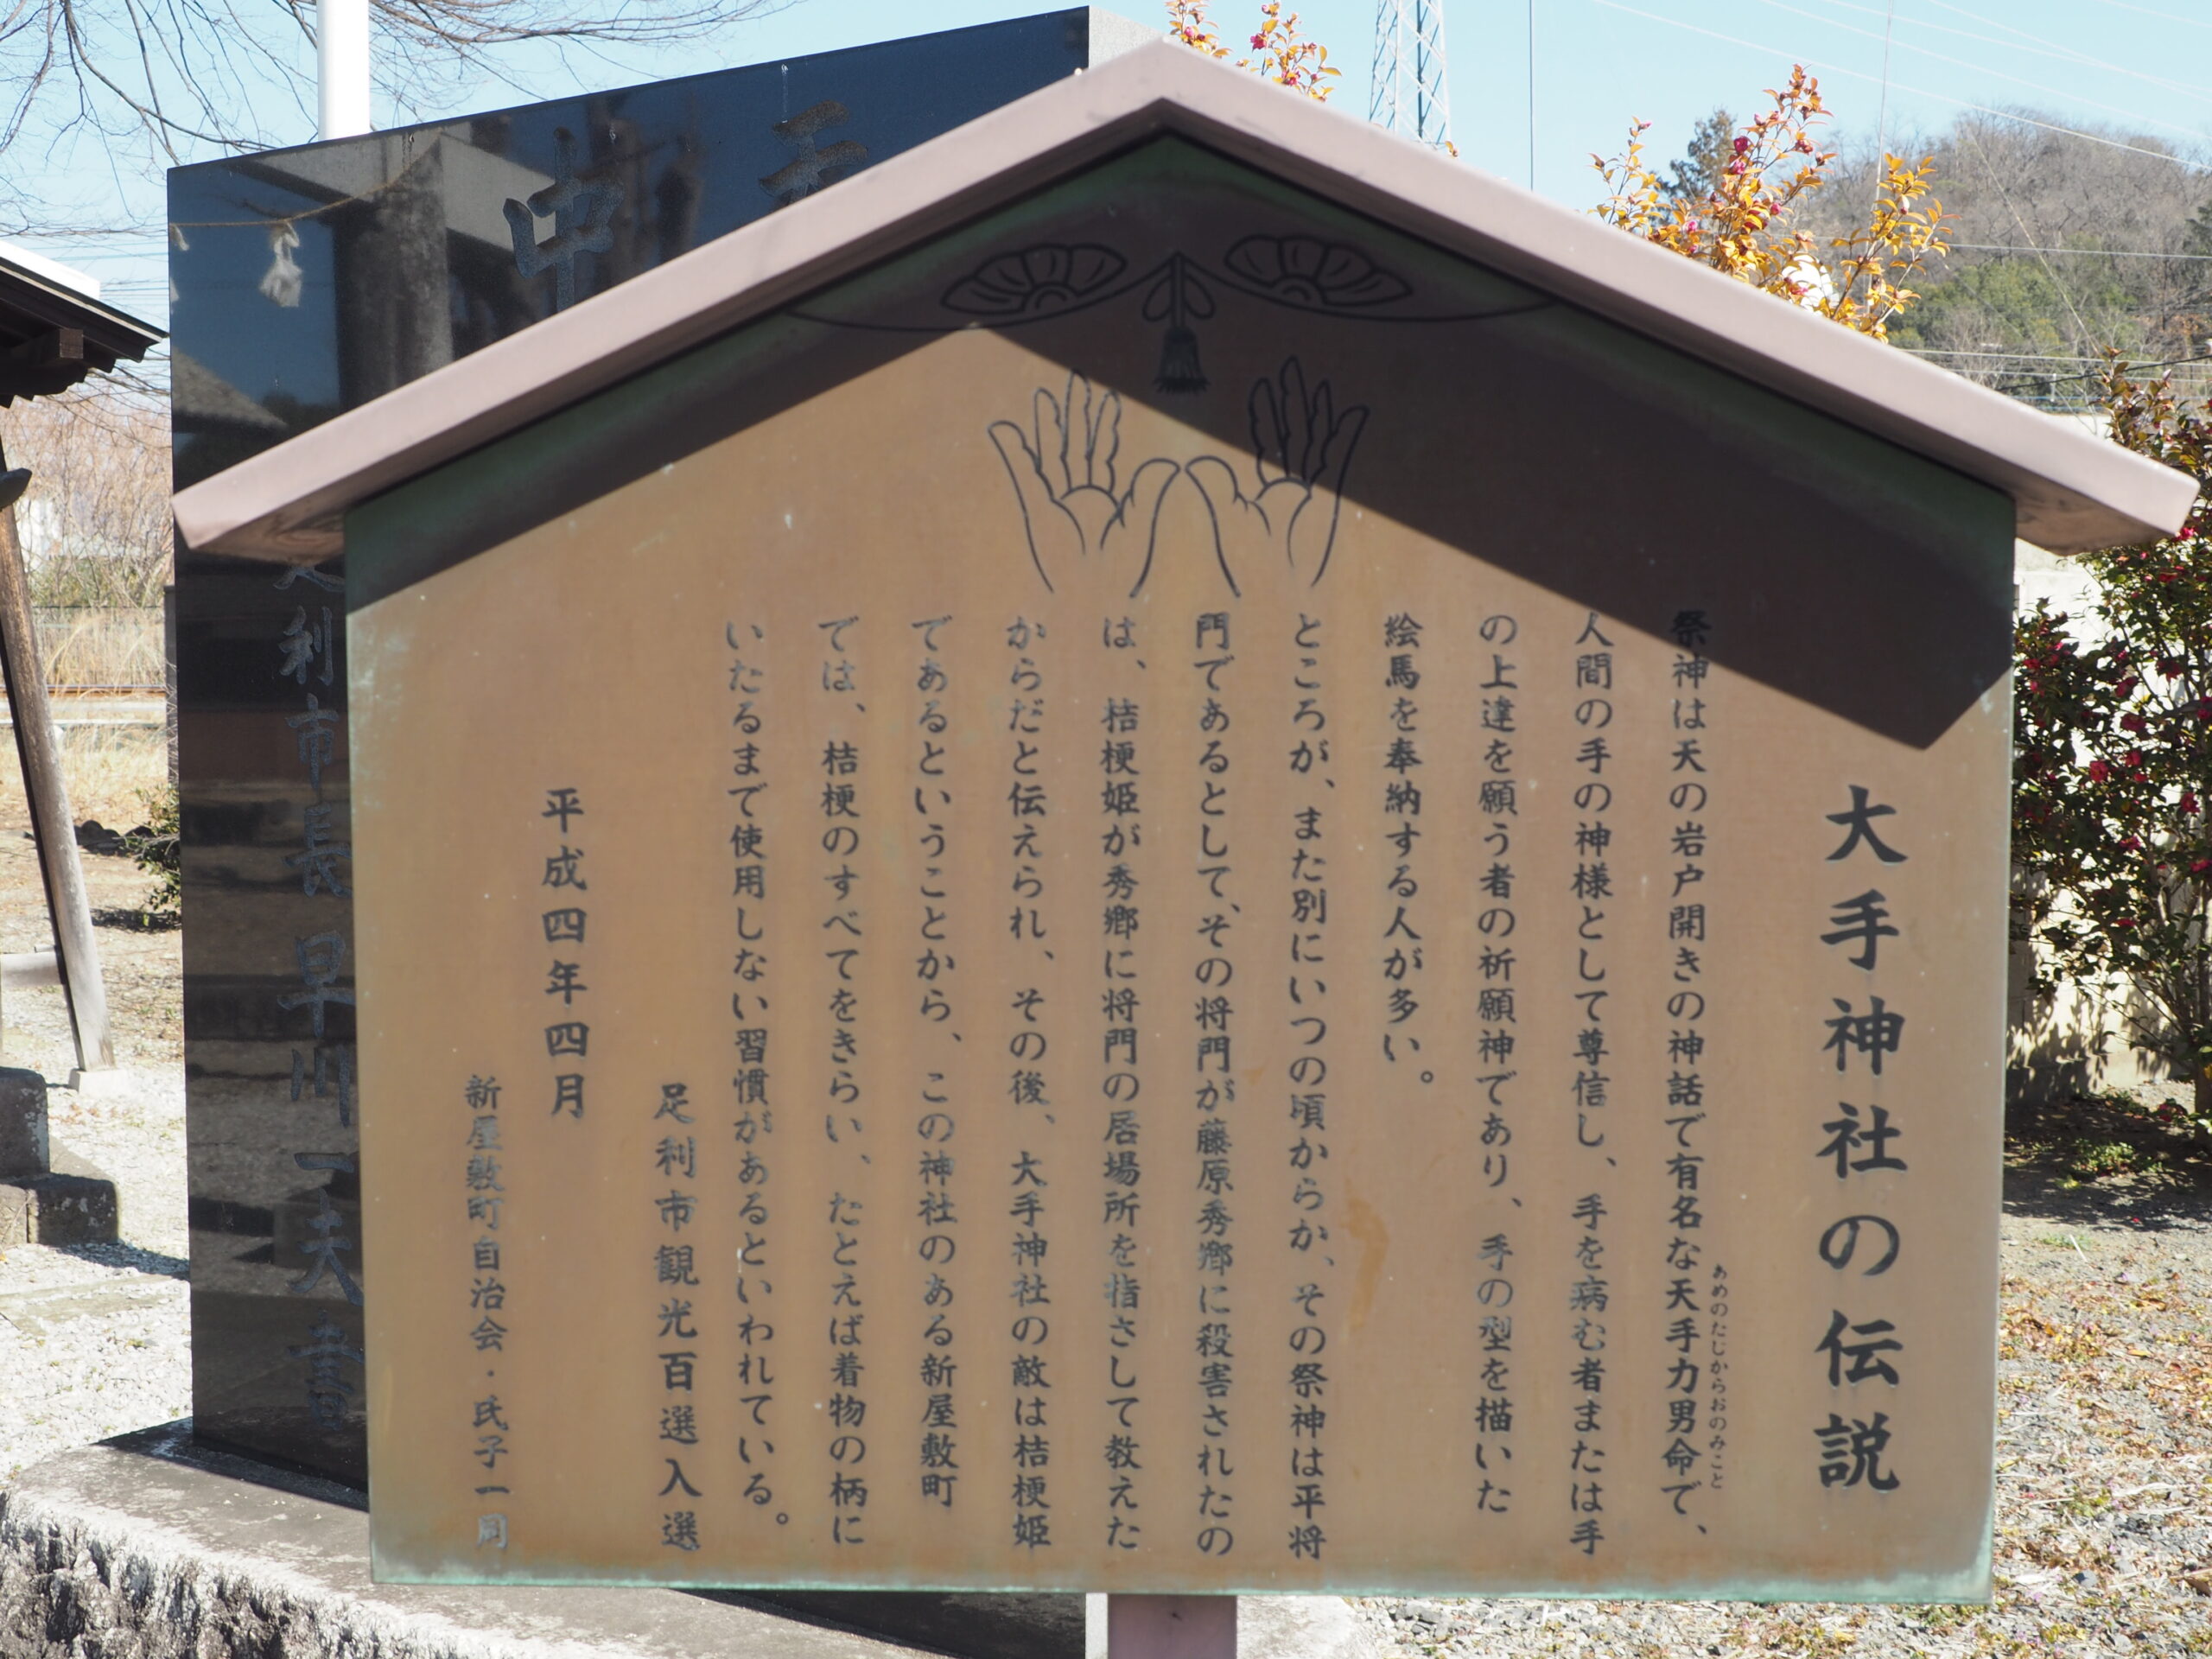 大手神社の伝説
祭神は天の岩戸開きの神話で有名な天手力男命で、
あめのたじからおのみこと
人間の手の神様として尊信し、手を病む者または手
の上達を願う者の祈願神であり、手の型を描いた
絵馬を奉納する人が多い。
ところが、また別にいつの頃からか、その祭神は平将
門であるとして、その将門が藤原秀郷に殺害されたの
は、桔梗姫が秀郷に将門の居場所を指さして教えた
からだと伝えられ、その後、大手神社の敵は桔梗姫
であるということから、この神社のある新屋敷町
では、桔梗のすべてをきらい、たとえば着物の柄に
いたるまで使用しない習慣があるといわれている。
足利市観光百選入選
平成四年四月
新屋敷町自治会・氏子一同
天
中
足利市長 早川一夫 書